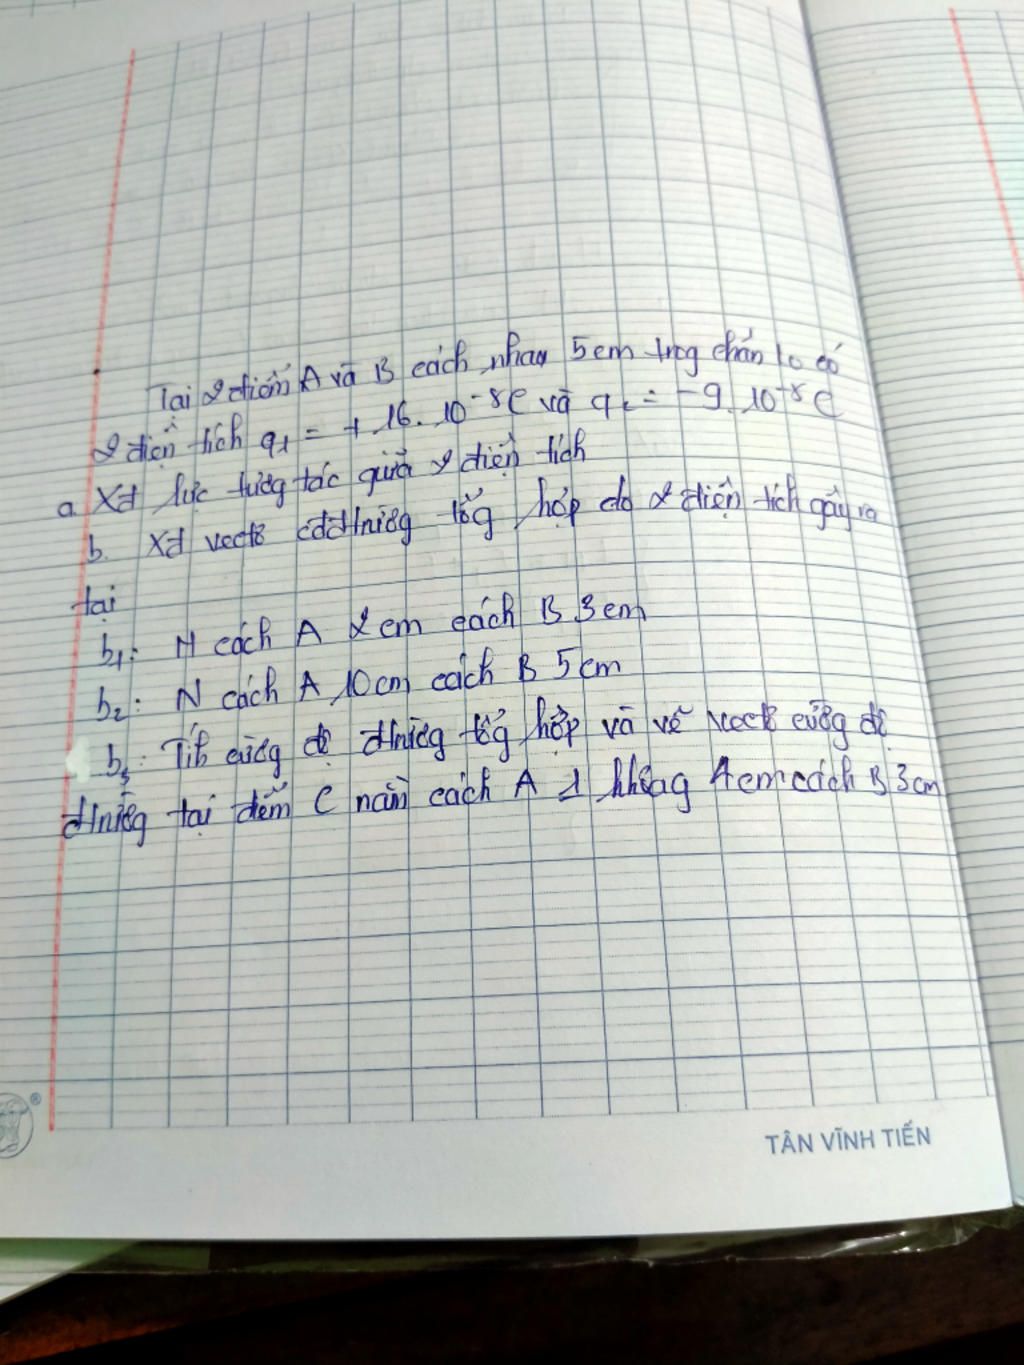 Tại 2 điểm A và B cách nhau 5cm trog chân ko có
2 điện tích q1 = + 16.10⁻⁸C và q2 = -9.10⁻⁸C
a. Xđ lực tương tác giữa 2 điện tích
b. Xđ vectơ cđđtrường tổg hợp do 2 điện tích gây ra
tại
b1: M cách A 2cm cách B 3cm
b2: N cách A 10cm cách B 5cm
b3: Tíh cườg độ đtrườg tổg hợp và vẽ vectơ cườg độ
đtrườg tại điểm C nằm cách A 1 khoảg 4cm cách B 3cm
TÂN VĨNH TIẾN